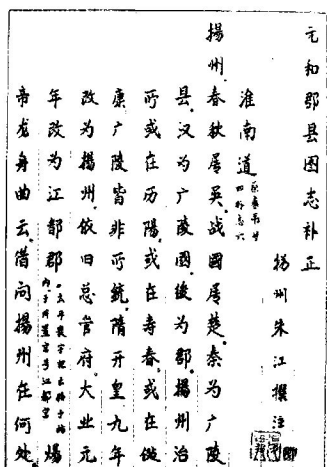 元和郡县图志补正
扬州朱江撰注
淮南道
揚州。春秋屬吴。战國屬楚。秦为广陵
县。汉为广陵國。後为郡。揚州治
所或在历陽。或在寿春。或在
康广陵皆非所統。隋开皇九年
改为揚州。依旧总管府。大业元
年改为江都郡
煬
帝龙舟曲云。借问揚州在何处。